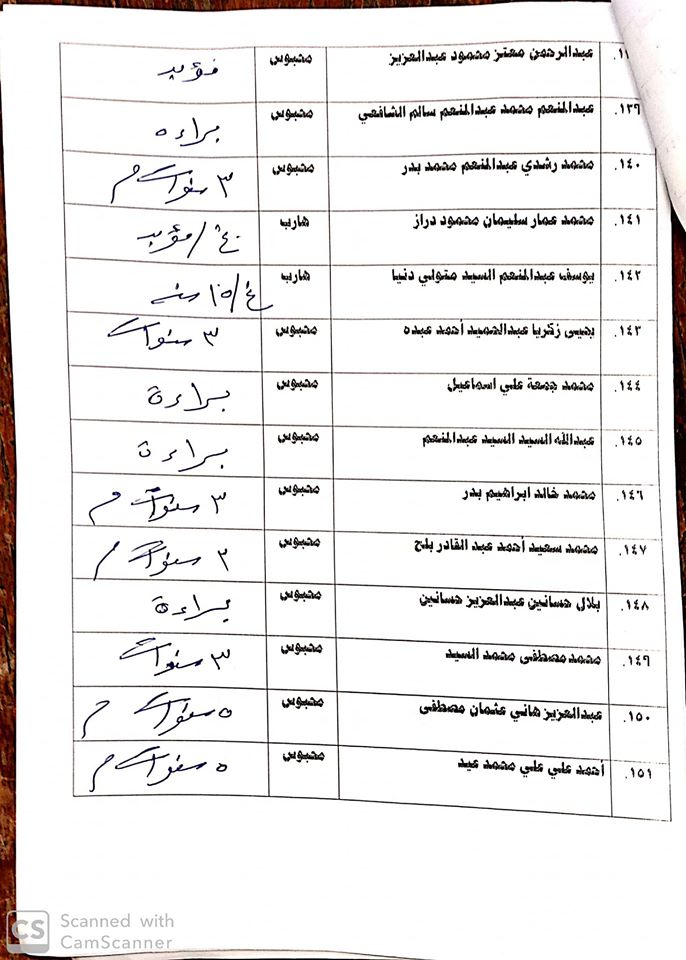 عبدالرحمن معتز محمود عبدالعزيز محبوس مؤبد
١٣٩. عبدالمنعم محمد عبدالمنعم سالم الشافعي محبوس براءه
١٤٠. محمد رشدي عبدالمنعم محمد بدر محبوس ٣ سنوات م
١٤١. محمد عمار سليمان محمود دراز هارب غ/مؤبد
١٤٢. يوسف عبدالمنعم السيد متولي دنيا هارب غ/١٥ سنه
١٤٣. يحيى زكريا عبدالحميد أحمد عبده محبوس ٣ سنوات
١٤٤. محمد جمعة علي اسماعيل محبوس براءة
١٤٥. عبدالله السيد السيد عبدالمنعم محبوس براءة
١٤٦. محمد خالد ابراهيم بدر محبوس ٣ سنوات م
١٤٧. محمد سعيد أحمد عبد القادر بلح محبوس سنوات م
١٤٨. بلال حسانين عبدالعزيز حسانين محبوس براءة
١٤٩. محمد مصطفى محمد السيد محبوس ٣ سنوات
١٥٠. عبدالعزيز هاني عثمان مصطفى محبوس ٥ سنوات م
١٥١. أحمد علي علي محمد عيد محبوس ٥ سنوات م
CS Scanned with
CamScanner